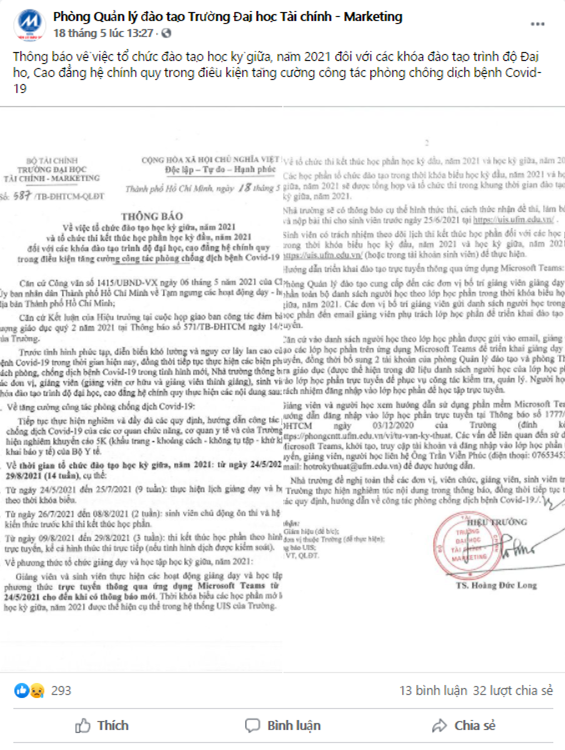 Phòng Quản lý đào tạo Trường Đại học Tài chính - Marketing
18 tháng 5 lúc 13:27
Thông báo về việc tổ chức đào tạo học kỳ giữa, năm 2021 đối với các khóa đào tạo trình độ Đại
họ, Cao đẳng hệ chính quy trong điều kiện tăng cường công tác phòng chống dịch bệnh Covid-
19
BỘ TÀI CHÍNH
TRƯỜNG ĐẠI HỌC
TÀI CHÍNH – MARKETING
Số: 587/TB-ĐHTCM-QLĐT
CỘNG HÒA XÃ HỘI CHỦ NGHĨA VIỆT
Độc lập - Tự do - Hạnh phúc
Thành phố Hồ Chí Minh, ngày 18 tháng 5
THÔNG BÁO
Về việc tổ chức đào tạo học kỳ giữa, năm 2021
và tổ chức thi kết thúc học phần học kỳ đầu, năm 2021
đối với các khóa đào tạo trình độ đại học, cao đẳng hệ chính quy
trong điều kiện tăng cường công tác phòng chống dịch bệnh Covid-19
Căn cứ Công văn số 1415/UBND-VX ngày 06 tháng 5 năm 2021 của C
Ủy ban nhân dân Thành phố Hồ Chí Minh về Tạm ngưng các hoạt động dạy - h
địa bàn Thành phố Hồ Chí Minh;
Căn cứ Kết luận của Hiệu trưởng tại cuộc họp giao ban công tác đảm bả
lượng giáo dục quý 2 năm 2021 tại Thông báo số 571/TB-ĐHTCM ngày 14/
Trước tình hình phức tạp, diễn biến khó lường và nguy cơ lây lan cao củ
bệnh Covid-19 trong thời gian hiện nay, đồng thời tiếp tục thực hiện các biện ph
cách phòng, chống dịch bệnh Covid-19 trong tình hình mới, Nhà trường thông b
các đơn vị, giảng viên (giảng viên cơ hữu và giảng viên thỉnh giảng), sinh vi
khóa đào tạo trình độ đại học, cao đẳng hệ chính quy thực hiện các nội dung sau:
. Về tăng cường công tác phòng chống dịch Covid-19:
Tiếp tục thực hiện nghiêm và đầy đủ các quy định, hướng dẫn công tác
chống dịch Covid-19 của các cơ quan chức năng, cơ quan y tế và của Trường
hiện nghiêm khuyến cáo 5K (khẩu trang - khoảng cách - không tụ tập - khử k
khai báo y tế) của Bộ Y tế.
. Về thời gian tổ chức đào tạo học kỳ giữa, năm 2021: từ ngày 24/5/202
29/8/2021 (14 tuần), cụ thể:
Từ ngày 24/5/2021 đến 25/7/2021 (9 tuần): thực hiện lịch giảng dạy và h
theo thời khóa biểu.
Từ ngày 26/7/2021 đến 08/8/2021 (2 tuần): sinh viên chủ động ôn thi và hệ
kiến thức trước khi thi kết thúc học phần.
Từ ngày 09/8/2021 đến 29/8/2021 (3 tuần): thi kết thúc học phần theo hình
trực tuyến, kể cả hình thức thi trực tiếp (nếu tình hình dịch được kiểm soát).
Về phương thức tổ chức giảng dạy và học tập học kỳ giữa, năm 2021:
Giảng viên và sinh viên thực hiện các hoạt động giảng dạy và học tập
phương thức trực tuyến thông qua ứng dụng Microsoft Teams từ
24/5/2021 cho đến khi có thông báo mới. Thời khóa biểu các học phần mở l
học kỳ giữa, năm 2021 được thể hiện cụ thể trong hệ thống UIS của Trường.
2
Về tổ chức thi kết thúc học phần học kỳ đầu, năm 2021 và học kỳ giữa, năm 20
Các học phần tổ chức đào tạo trong thời khóa biểu học kỳ đầu, năm 2021 và họ
giữa, năm 2021 sẽ được tổng hợp và tổ chức thi trong khung thời gian đào tạo
kỳ giữa, năm 2021.
Nhà trường sẽ có thông báo cụ thể hình thức thi, cách thức nhận đề thi, làm bà
và nộp bài thi cho sinh viên trước ngày 25/6/2021 tại https://uis.ufm.edu.vn/.
Sinh viên có trách nhiệm theo dõi lịch thi kết thúc học phần đối với các học p
trong thời khóa biểu học kỳ đầu, năm 2021 và học kỳ giữa, năm 2021
https://uis.ufm.edu.vn/ (hoặc trong tài khoản sinh viên) để thực hiện.
Hướng dẫn triển khai đào tạo trực tuyến thông qua ứng dụng Microsoft Teams:
Phòng Quản lý đào tạo cung cấp đến các đơn vị bố trí giảng viên giảng dạy
phần toàn bộ danh sách người học theo lớp học phần trong thời khóa biểu họ
giữa, năm 2021. Các đơn vị bố trí giảng viên gửi danh sách người học trong
học phần đến email giảng viên phụ trách lớp học phần để triển khai đào tạo
tuyến.
Căn cứ vào danh sách người học theo lớp học phần được gửi vào email, giảng
tạo các lớp học phần trên ứng dụng Microsoft Teams để triển khai giảng dạy
tuyến, đồng thời bổ sung 2 tài khoản của phòng Quản lý đào tạo và phòng Th
tra giáo dục (được thể hiện trong dữ liệu danh sách người học của lớp học ph
vào lớp học phần trực tuyến để phục vụ công tác kiểm tra, quản lý. Người học
trách nhiệm đăng nhập vào lớp học phần để học tập trực tuyến.
Giảng viên và người học xem hướng dẫn sử dụng phần mềm Microsoft Team
hướng dẫn đăng nhập vào lớp học phần trực tuyến tại Thông báo số 1777/
ĐHTCM ngày 03/12/2020 của Trường (đính kè
https://phongcntt.ufm.edu.vn/vi/tu-van-ky-thuat. Các vấn đề liên quan đến sử d
Microsoft Teams, khởi tạo, truy cập tài khoản và đăng nhập vào lớp học phần
tuyến, giảng viên, người học liên hệ Ông Trần Viễn Phúc (điện thoại: 07653453
email: hotrokythuat@ufm.edu.vn) để được hướng dẫn.
Nhà trường đề nghị toàn thể các đơn vị, viên chức, giảng viên, sinh viên tr
Trường thực hiện nghiêm túc nội dung trong thông báo, đồng thời tiếp tục t
các quy định, hướng dẫn về công tác phòng chống dịch Covid-19./.
nhận:
Giám hiệu (để b/c);
đơn vị thuộc Trường (để thực hiện);
ng báo UIS;
VT, QLĐT.
HIỆU TRƯỞNG
TRƯỜNG
ĐẠI HỌC
TÀI CHÍNH
- MARKETING
TS. Hoàng Đức Long
293
13 bình luận 32 lượt chia sẻ
Thích
Bình luận
Chia sẻ